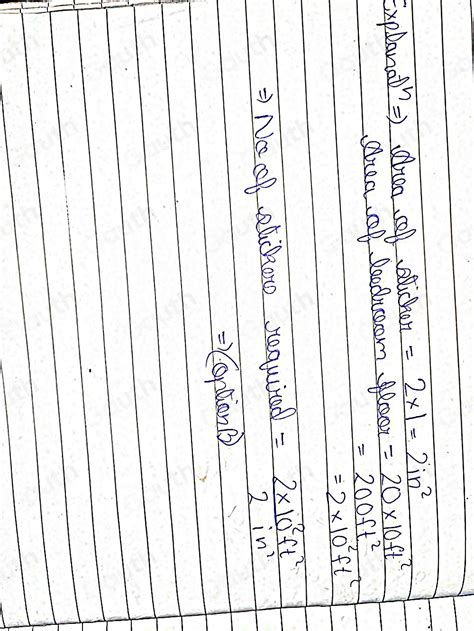 Explanatⁿ ⇒ Area of sticker = 2 × 1 = 2 in²
Area of bedroom floor = 20 × 10 ft²
= 200 ft²
= 2 × 10² ft²
⇒ No of stickers required = 2 × 10² ft² / 2 in²
⇒ (option B)